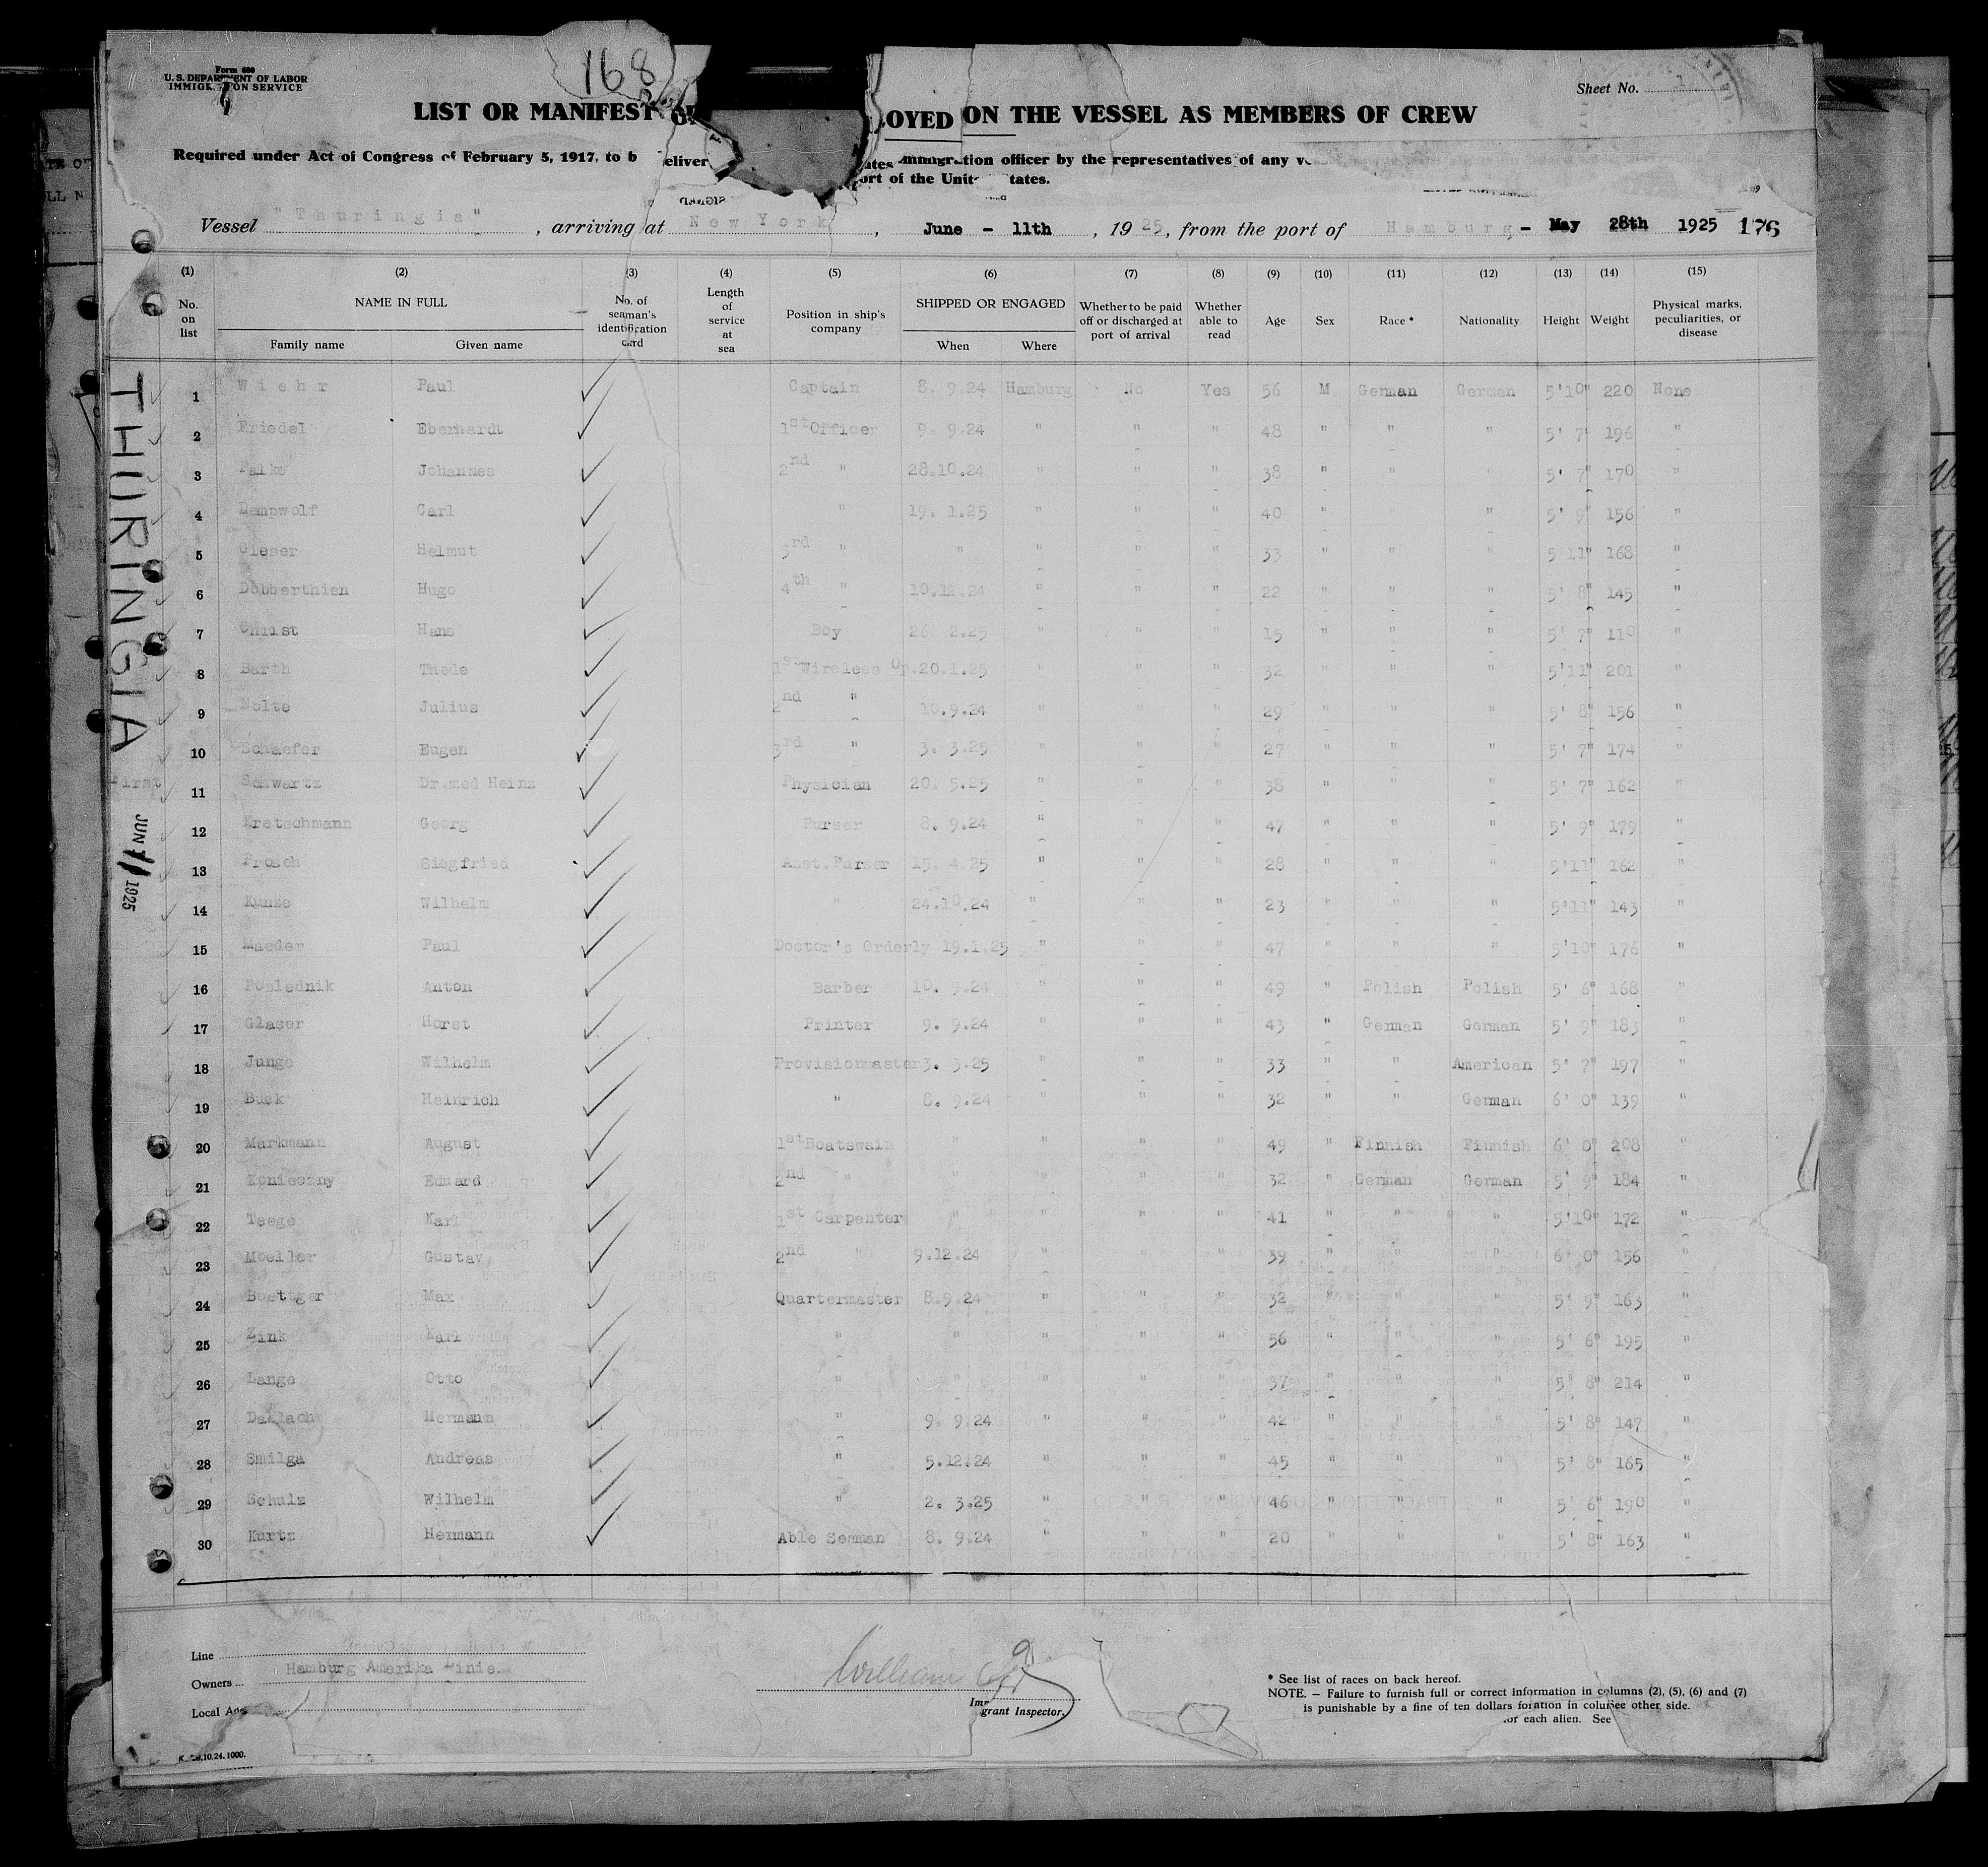 Form 680
U. S. DEPARTMENT OF LABOR
IMMIGRATION SERVICE
168
Sheet No. 1
LIST OR MANIFEST OF LOYED ON THE VESSEL AS MEMBERS OF CREW
Required under Act of Congress of February 5, 1917, to b eliver ates immigration officer by the representatives of any v
ort of the Unit tates.
Vessel "Thuringia", arriving at New York, June - 11th, 1925, from the port of Hamburg - May 28th 1925 176
(1) (2) (3) (4) (5) (6) (7) (8) (9) (10) (11) (12) (13) (14) (15)
No. on list NAME IN FULL Family name Given name No. of seaman's identification card Length of service at sea Position in ship's company SHIPPED OR ENGAGED When Where Whether to be paid off or discharged at port of arrival Whether able to read Age Sex Race * Nationality Height Weight Physical marks, peculiarities, or disease
THURINGIA
First
JUN 11 1925
1 Wiehr Paul Captain 8. 9.24 Hamburg No Yes 56 M German German 5'10" 220 None
2 Friedel Eberhardt 1st Officer 9. 9.24 " " " 48 " " " 5' 7" 196 "
3 Johannes 2nd " 28.10.24 " " " 38 " " " 5' 7" 170 "
4 Dempwolf Carl " 19. 1.25 " " " 40 " " 5' 9" 156 "
5 Gleser Helmut 3rd " " " " " 33 " " " 5'11" 168 "
6 Dobberthien Hugo 4th " 10.12.24 " " " 22 " " " 5' 8" 145 "
7 Christ Hans Boy 26. 2.25 " " " 15 " " " 5' 7" 110 "
8 Barth Thede 1st Wireless Op. 20.1.25 " " " 32 " " " 5'11" 201 "
9 Nolte Julius 2nd " 10.9.24 " " " 29 " " " 5' 8" 156 "
10 Schaefer Eugen 3rd " 3. 3.25 " " " 27 " " " 5' 7" 174 "
11 Schwartz Dr.med Heinz Physician 20. 5.25 " " " 38 " " " 5' 7" 162 "
12 Kretschmann Georg Purser 8. 9.24 " " " 47 " " " 5' 9" 179 "
13 Frosch Siegfried Asst.Purser 15. 4.25 " " " 28 " " " 5'11" 162 "
14 Kunze Wilhelm 24.10.24 " " " 23 " " " 5'11" 143 "
15 Maeder Paul Doctor's Orderly 19.1.25 " " " 47 " " " 5'10" 176 "
16 Poslednik Anton Barber 10. 9.24 " " " 49 " Polish Polish 5' 6" 168 "
17 Glaser Horst Printer 9. 9.24 " " " 43 " German German 5' 9" 183 "
18 Junge Wilhelm Provisionmaster 3. 3.25 " " " 33 " " American 5' 7" 197 "
19 Buek Heinrich " 8. 9.24 " " " 32 " " German 6' 0" 139 "
20 Markmann August 1st Boatswain " " " " 49 " Finnish Finnish 6' 0" 208 "
21 Konieczny Eduard 2nd " " " " " 32 " German German 5' 9" 184 "
22 Teege Karl 1st Carpenter " " " " 41 " " " 5'10" 172 "
23 Moeller Gustav 2nd " 9.12.24 " " " 39 " " " 6' 0" 156 "
24 Boettger Max Quartermaster 8.9.24 " " " 32 " " " 5' 9" 163 "
25 Zink Karl " " " " " 56 " " " 5' 6" 195 "
26 Lange Otto " " " " " 37 " " " 5' 8" 214 "
27 Dallach Hermann " 9. 9.24 " " " 42 " " " 5' 8" 147 "
28 Smilga Andreas " 5.12.24 " " " 45 " " " 5' 8" 165 "
29 Schulz Wilhelm " 2. 3.25 " " " 46 " " " 5' 6" 190 "
30 Kurtz Hermann Able Seaman 8. 9.24 " " " 20 " " " 5' 8" 163 "
Line
Owners Hamburg Amerika Linie.
Local Age
William
Imm grant Inspector.
* See list of races on back hereof.
NOTE. — Failure to furnish full or correct information in columns (2), (5), (6) and (7)
is punishable by a fine of ten dollars for each alien. See other side.
10.24.1000.